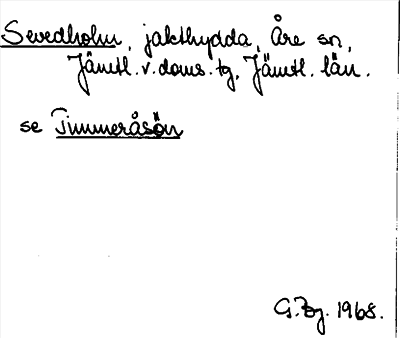 Sevedholm, jakthydda, Åre sn,
Jämtl. v. doms. tg, Jämtl. län.
se Timmeråsön
G. Bg. 1968.